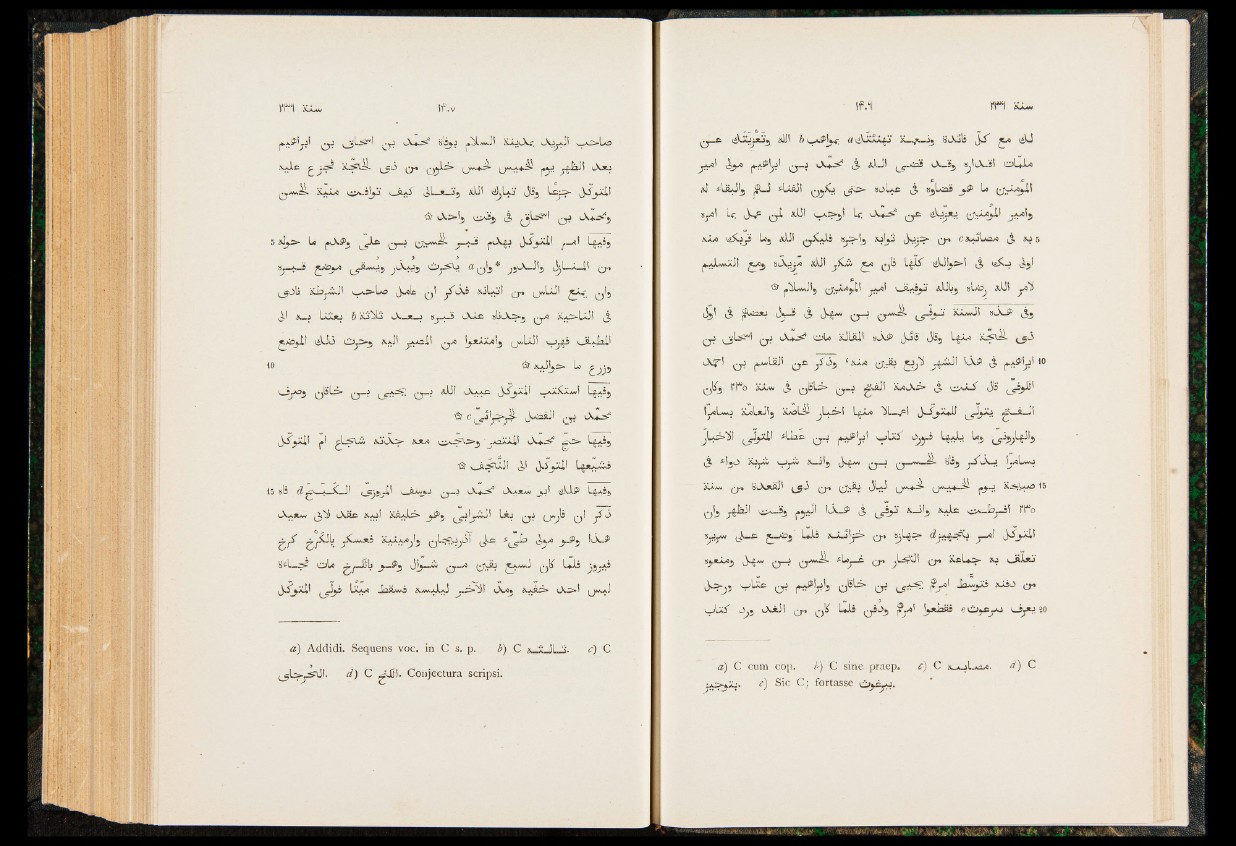 سنة ٢٣٦ ١٤٠٦
لك مع كلّ فائدة ونعمة تهنئتك a بمواهب b الله وتعزيتك عن
ملمّات اقداره وقد قضى الله فى محمّد بن ابراهيم مولى امير
المؤمنين ما هو قضاؤه فى عباده حتى يكون الفناء لهم والبقاء له
وامير المؤمنين يعزّيك عن محمّد بما اوجب الله لمن عمل بما امره
5 به فى مصائبه c من جزيل ثوابه واجره فليكن الله وما قرّبك منه
اولى بك فى احوالك كلّها فان مع شكر الله مزيده ومع التسليم
لامر الله رضاه وبالله توفيق امير المؤمنين والسلام ۞
وفى هذه السنة توفّى الحسن بن سهل فى قول بعضهم فى اوّل
ذى الحجّة منها وقال قائل هذه المقالة مات محمّد بن اسحاق بن
10 ابراهيم فى هذا الشهر لاربع بقين منه، وذكر عن القاسم بن احمد
الكوفىّ قال كنت فى خدمة الفتح بن خاقان فى سنة ٢٣٥ وكان
الفتح يتولّى للمتوكّل اعمالا منها اخبار الخاصّة والعامّة بسامرّا
والهارونىّ وما يليها فورد كتاب ابراهيم بن عطاء المتولّى الاخبار
بسامرّا يذكر وفاة الحسن بن سهل وانه شرب شربة دواء فى
15 صبيحة يوم الخميس لخمس ليال بقين من ذى القعدة من سنة
٢٣٥ افرطت عليه وانه توفّى فى هذا اليوم وقت الظهر وان
المتوكّل امر بتجهيز d جهازه من خزائنه فلمّا وضع على سريره
تعلّق به جماعة من التجّار من غرماء الحسن بن سهل ومنعوه
من دفنه فتوسّط امرهم يحيى بن خاقان وابراهيم بن عتّاب ورجل
20 يعرف ببرغوث e فقطعوا امرهم ودفن فلمّا كان من الغد ورد كتاب
a) C cum cop. b) C sine praep. c) C مصايبه. d) C
بتوجيز. e) Sic C; fortasse ببرغوث.
سنة ٢٣٦ ١٤٠٧
صاحب البريد بمدينة السلام بوفاة محمّد بن اسحاق بن ابراهيم
بعد الظهر يوم الخميس لخمس خلون من ذى الحجّة فجزع عليه
المتوكّل جزعا وقال تبارك الله وتعالى كيف توافت منيّة الحسن
ومحمّد بن اسحاق فى وقت واحد ۞
5 وفيها امر المتوكّل بهدم قبر الحسين بن علىّ وهدم ما حوله
من المنازل والدور *وان a يحرث ويبذر ويسقى موضع قبره
وان يمنع الناس من اتيانه فذكر ان عامل صاحب الشرطة نادى
فى الناحية من وجدناه عند قبره بعد ثلاثة b بعثنا به الى
المطبق فهرب الناس وامتنعوا من المصير اليه وحرث ذلك الموضع
10 وزرع ما حواليه ۞
وفيها استكتب المتوكّل عبيد الله بن يحيى بن خاقان وصرف
محمّد بن الفضل الجرجرائىّ c ۞
وفيها حجّ محمّد المنتصر وحجّت معه جدّته شجاع امّ المتوكّل
فشيّعها المتوكّل الى النجف ۞
15 وفيها هلك ابو سعيد محمّد بن يوسف المروزىّ d
ذكر ان فارس بن بغا الشرابىّ وهو خليفة ابيه عقد لابى سعيد
هذا وهو مولى طىّء على آذربيجان وارمينية فعسكر بالكرخ كرخ
فيروز فلمّا كان لسبع بقين من شوّال وهو بالكرخ مات فجاءة
لبس احد خفّيه ومدّ الآخر ليلبسه فسقط ميّتا فولّى المتوكّل
a) Addidi. Sequens voc. in C s. p. b) C ثالثه. c) C
الجرجاى. d) C. Conjectura scripsi.